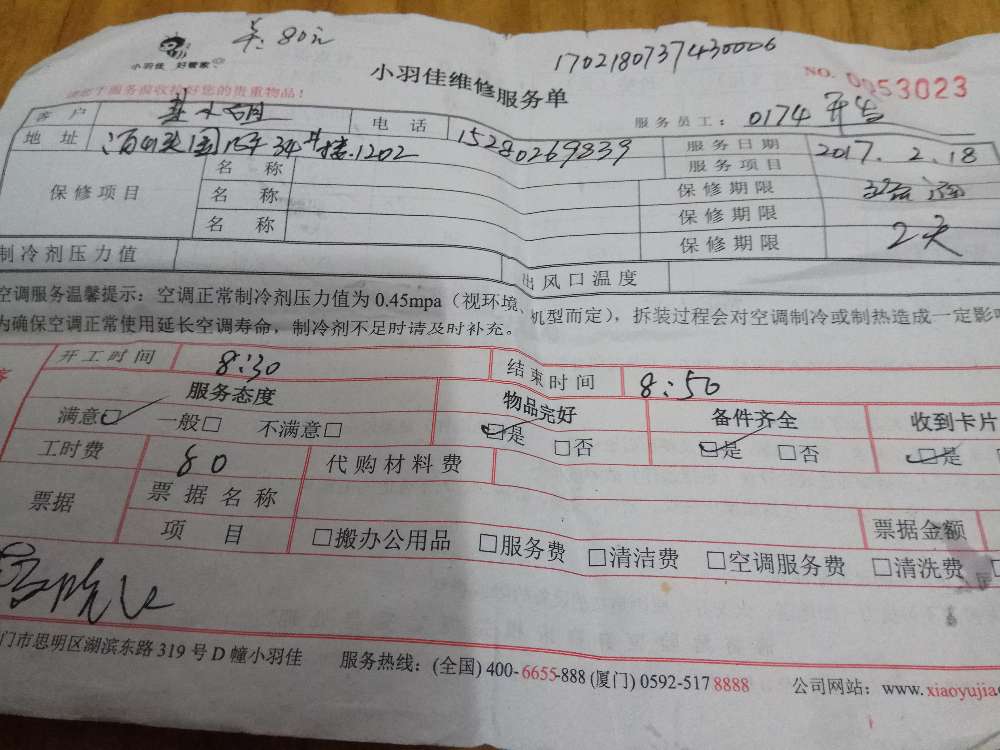 羊: 80元
17021807374430006
小羽佳 好管家
小羽佳维修服务单
NO. 0053023
请您于服务前收捡好您的贵重物品!
服务员工: 0174
客 户
电 话 15280269839
服务日期 2017.2.18
地 址 34#楼.1202
服务项目
保修项目 名 称 保修期限
名 称 保修期限
名 称 保修期限 2天
制冷剂压力值 出风口温度
空调服务温馨提示: 空调正常制冷剂压力值为 0.45mpa (视环境、机型而定), 拆装过程会对空调制冷或制热造成一定影响
为确保空调正常使用延长空调寿命, 制冷剂不足时请及时补充。
开工时间 8:30 结束时间 8:50
服务态度 物品完好 备件齐全 收到卡片
满意☑ 一般□ 不满意□ ☑是 □否 ☑是 □否 ☑是
工时费 80 代购材料费
票据 票据名称 票据金额
项 目 □搬办公用品 □服务费 □清洁费 □空调服务费 □清洗费
门市思明区湖滨东路 319 号 D 幢小羽佳 服务热线: (全国) 400-6655-888 (厦门) 0592-517 8888 公司网站: www.xiaoyujia